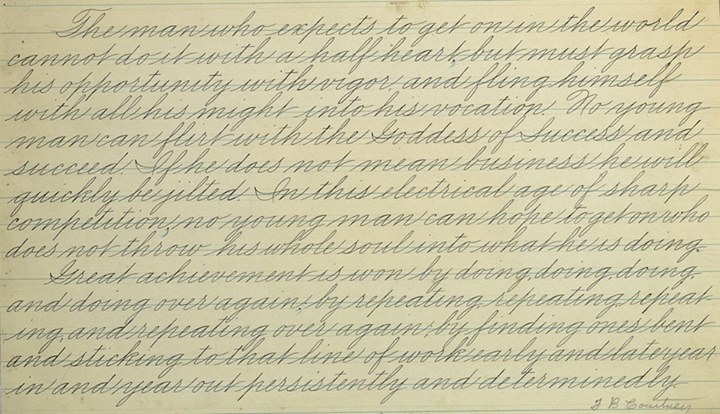 The man who expects to get on in the world
cannot do it with a half heart but must grasp
his opportunity with vigor, and fling himself
with all his might into his vocation. No young
man can flirt with the Goddess of Success and
succeed. If he does not mean business he will
quickly be jilted. In this electrical age of sharp
competition, no young man can hope to get on who
does not throw his whole soul into what he is doing.
Great achievement is won by doing, doing, doing
and doing over again; by repeating, repeating, repeat-
ing, and repeating over again; by finding ones bent
and sticking to that line of work early and late year
in and year out persistently and determinedly.
F B Courtney